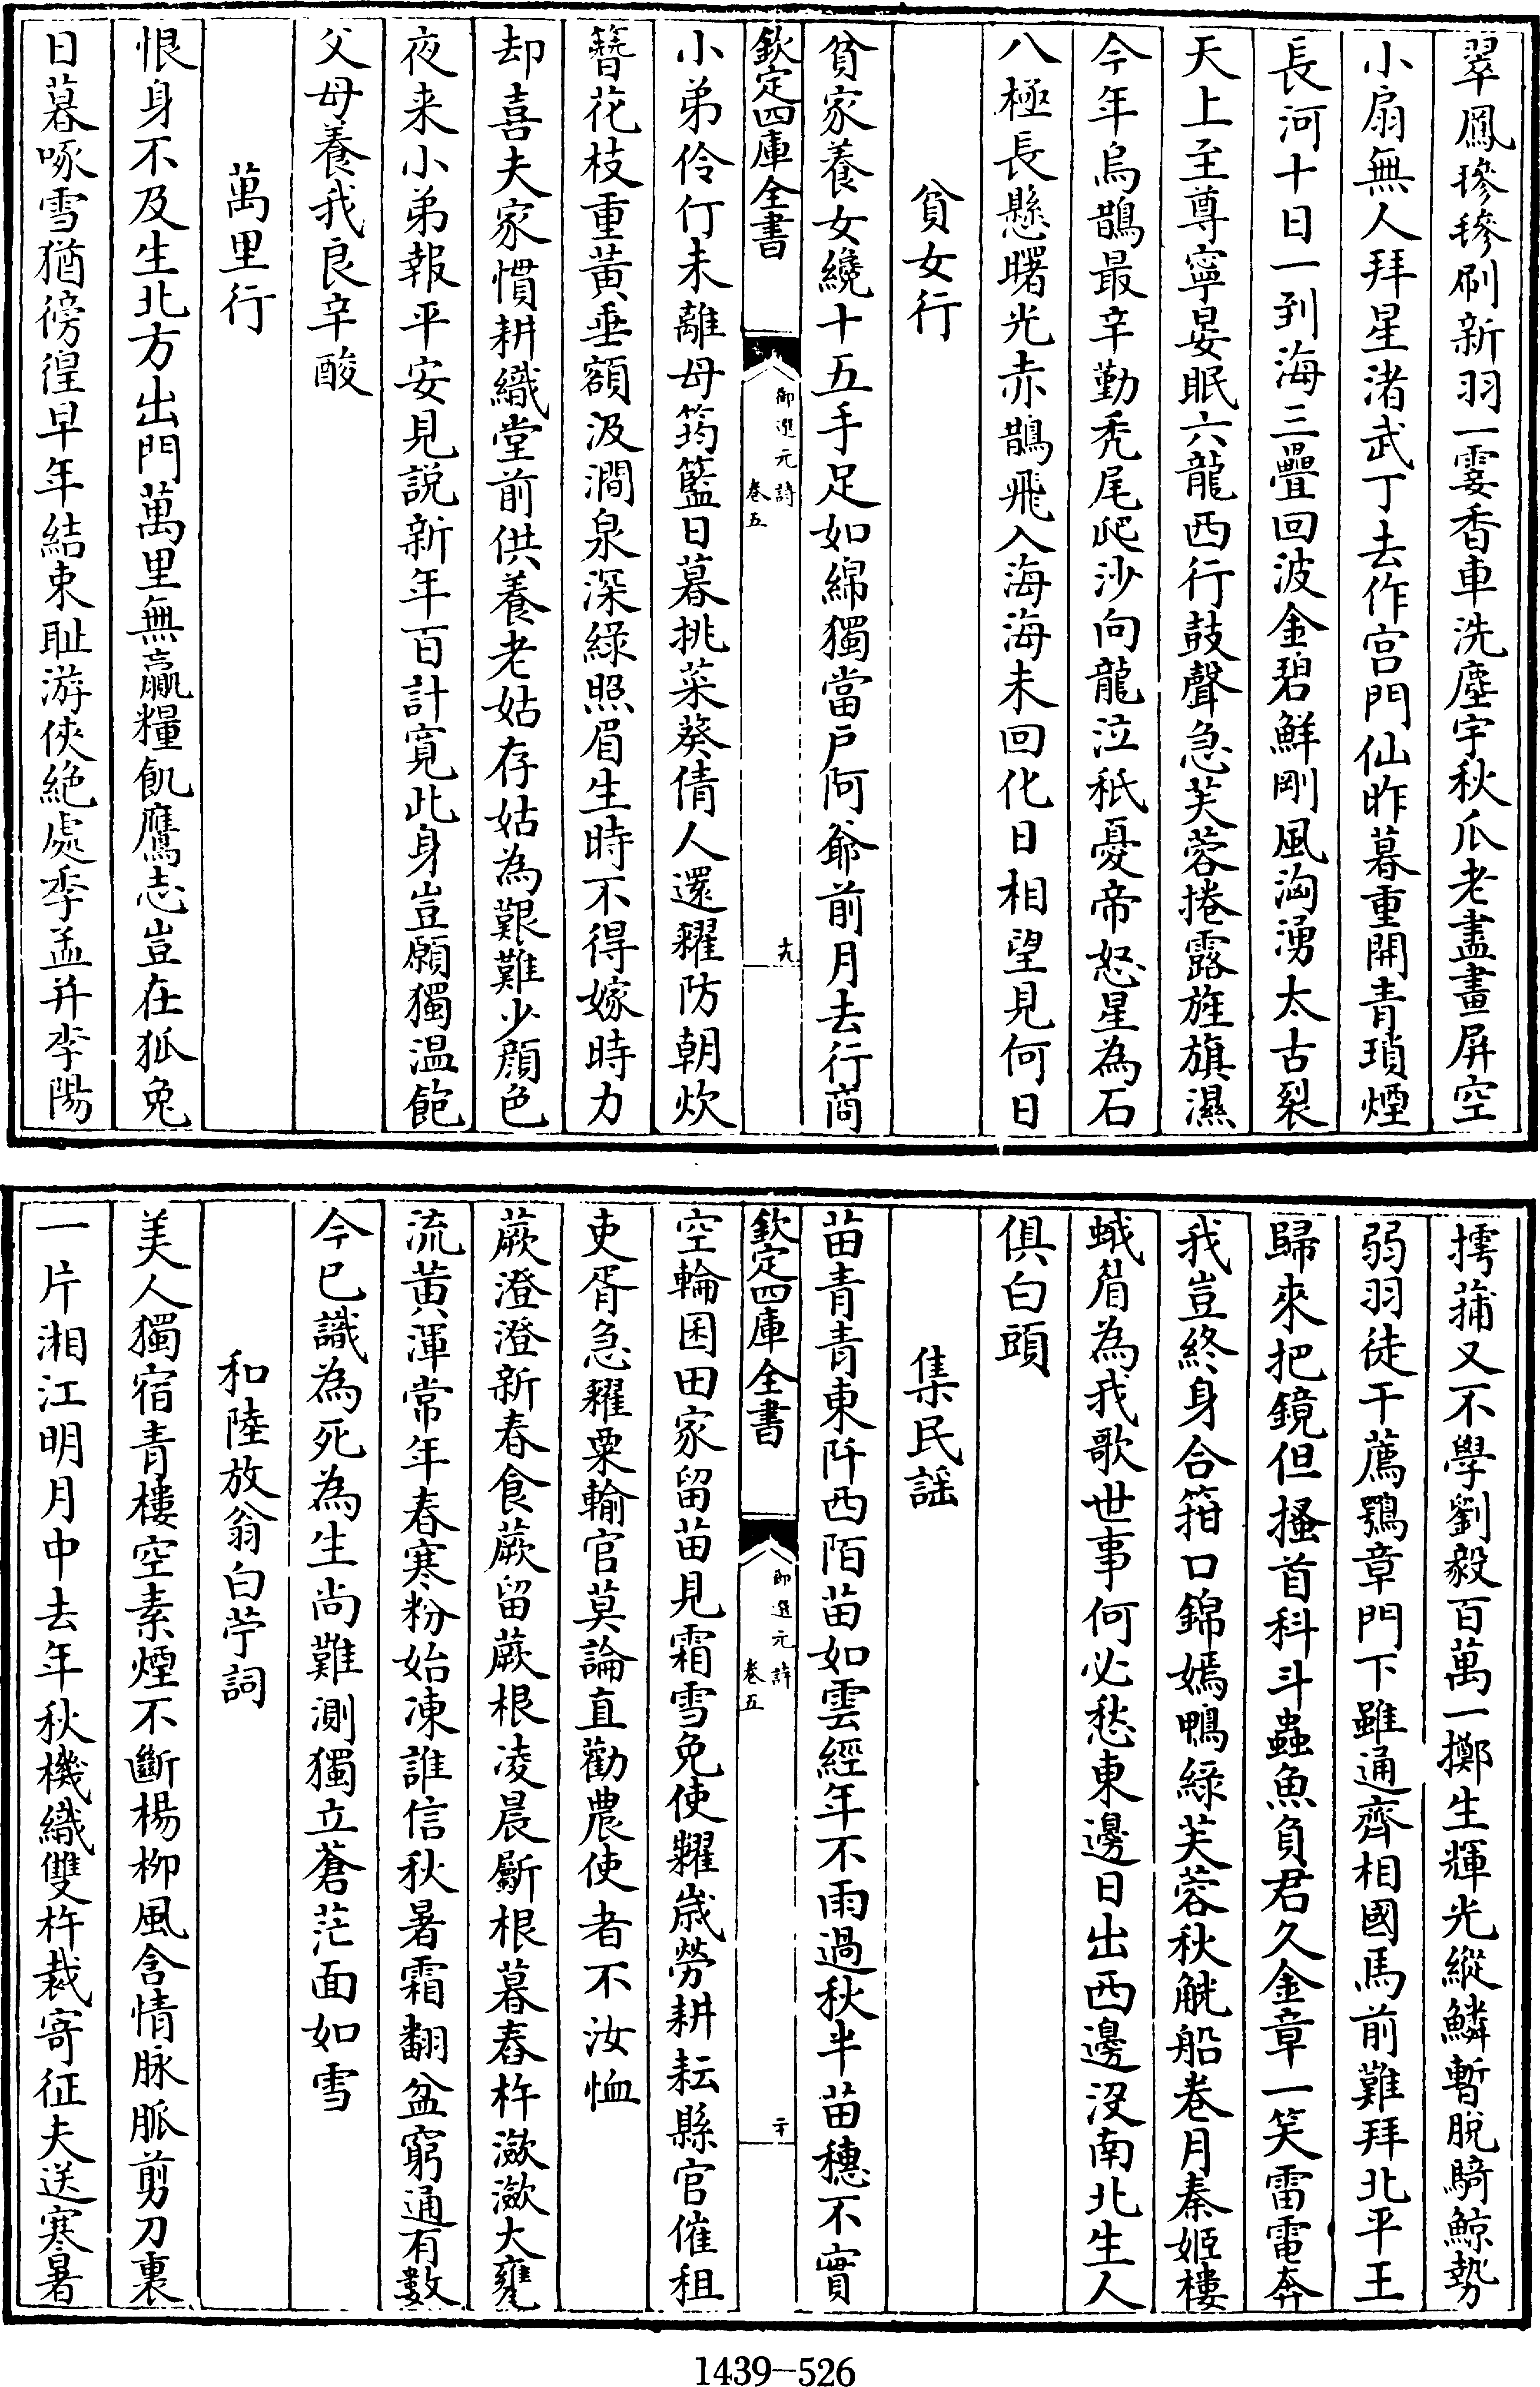 翠鳳㲯㲯刷新羽一霎香車洗塵宇秋瓜老盡畫屏空
小扇無人拜星渚武丁去作宫門仙昨暮重開青瑣煙
長河十日一到海三疊回波金碧鮮剛風洶湧太古裂
天上至尊寧晏眠六龍西行鼓聲急芙蓉捲露旌旗濕
今年烏鵲最辛勤秃尾爬沙向龍泣秪憂帝怒星為石
八極長懸曙光赤鵲飛入海海未回化日相望見何日
貧女行
貧家養女纔十五手足如綿獨當户阿爺前月去行商
欽定四庫全書
御選元詩
卷五
十九
小弟伶仃未離母筠籃日暮挑菜葵倩人還糴防朝炊
簪花枝重黄垂額汲澗泉深綠照眉生時不得嫁時力
却喜夫家慣耕織堂前供養老姑存姑為艱難少顔色
夜来小弟報平安見説新年百計寛此身豈願獨温飽
父母養我良辛酸
萬里行
恨身不及生北方出門萬里無贏糧飢鷹志豈在狐兔
日暮啄雪猶徬徨早年結束耻游俠絶處季孟并李陽
摴蒱又不學劉毅百萬一擲生輝光縱鱗暫脱騎鯨勢
弱羽徒干薦鶚章門下雖通齊相國馬前難拜北平王
歸來把鏡但搔首科斗蟲魚負君久金章一笑雷電奔
我豈終身合箝口錦嫣鴨綠芙蓉秋觥船卷月秦姬樓
蛾眉為我歌世事何必愁東邊日出西邊没南北生人
俱白頭
集民謡
苗青青東阡西陌苗如雲經年不雨過秋半苗穗不實
欽定四庫全書
御選元詩
卷五
二十
空輪囷田家留苗見霜雪免使糶歲勞耕耘縣官催租
吏胥急糴粟輸官莫論直勸農使者不汝恤
蕨澄澄新春食蕨留蕨根凌晨斸根暮舂杵潋潋大甕
流黄渾常年春寒粉始凍誰信秋暑霜翻盆窮通有數
今已識為死為生尚難測獨立蒼茫面如雪
和陸放翁白苧詞
美人獨宿青樓空素煙不斷楊柳風含情脉脈剪刀裏
一片湘江明月中去年秋機織雙杵裁寄征夫送寒暑
1439-526